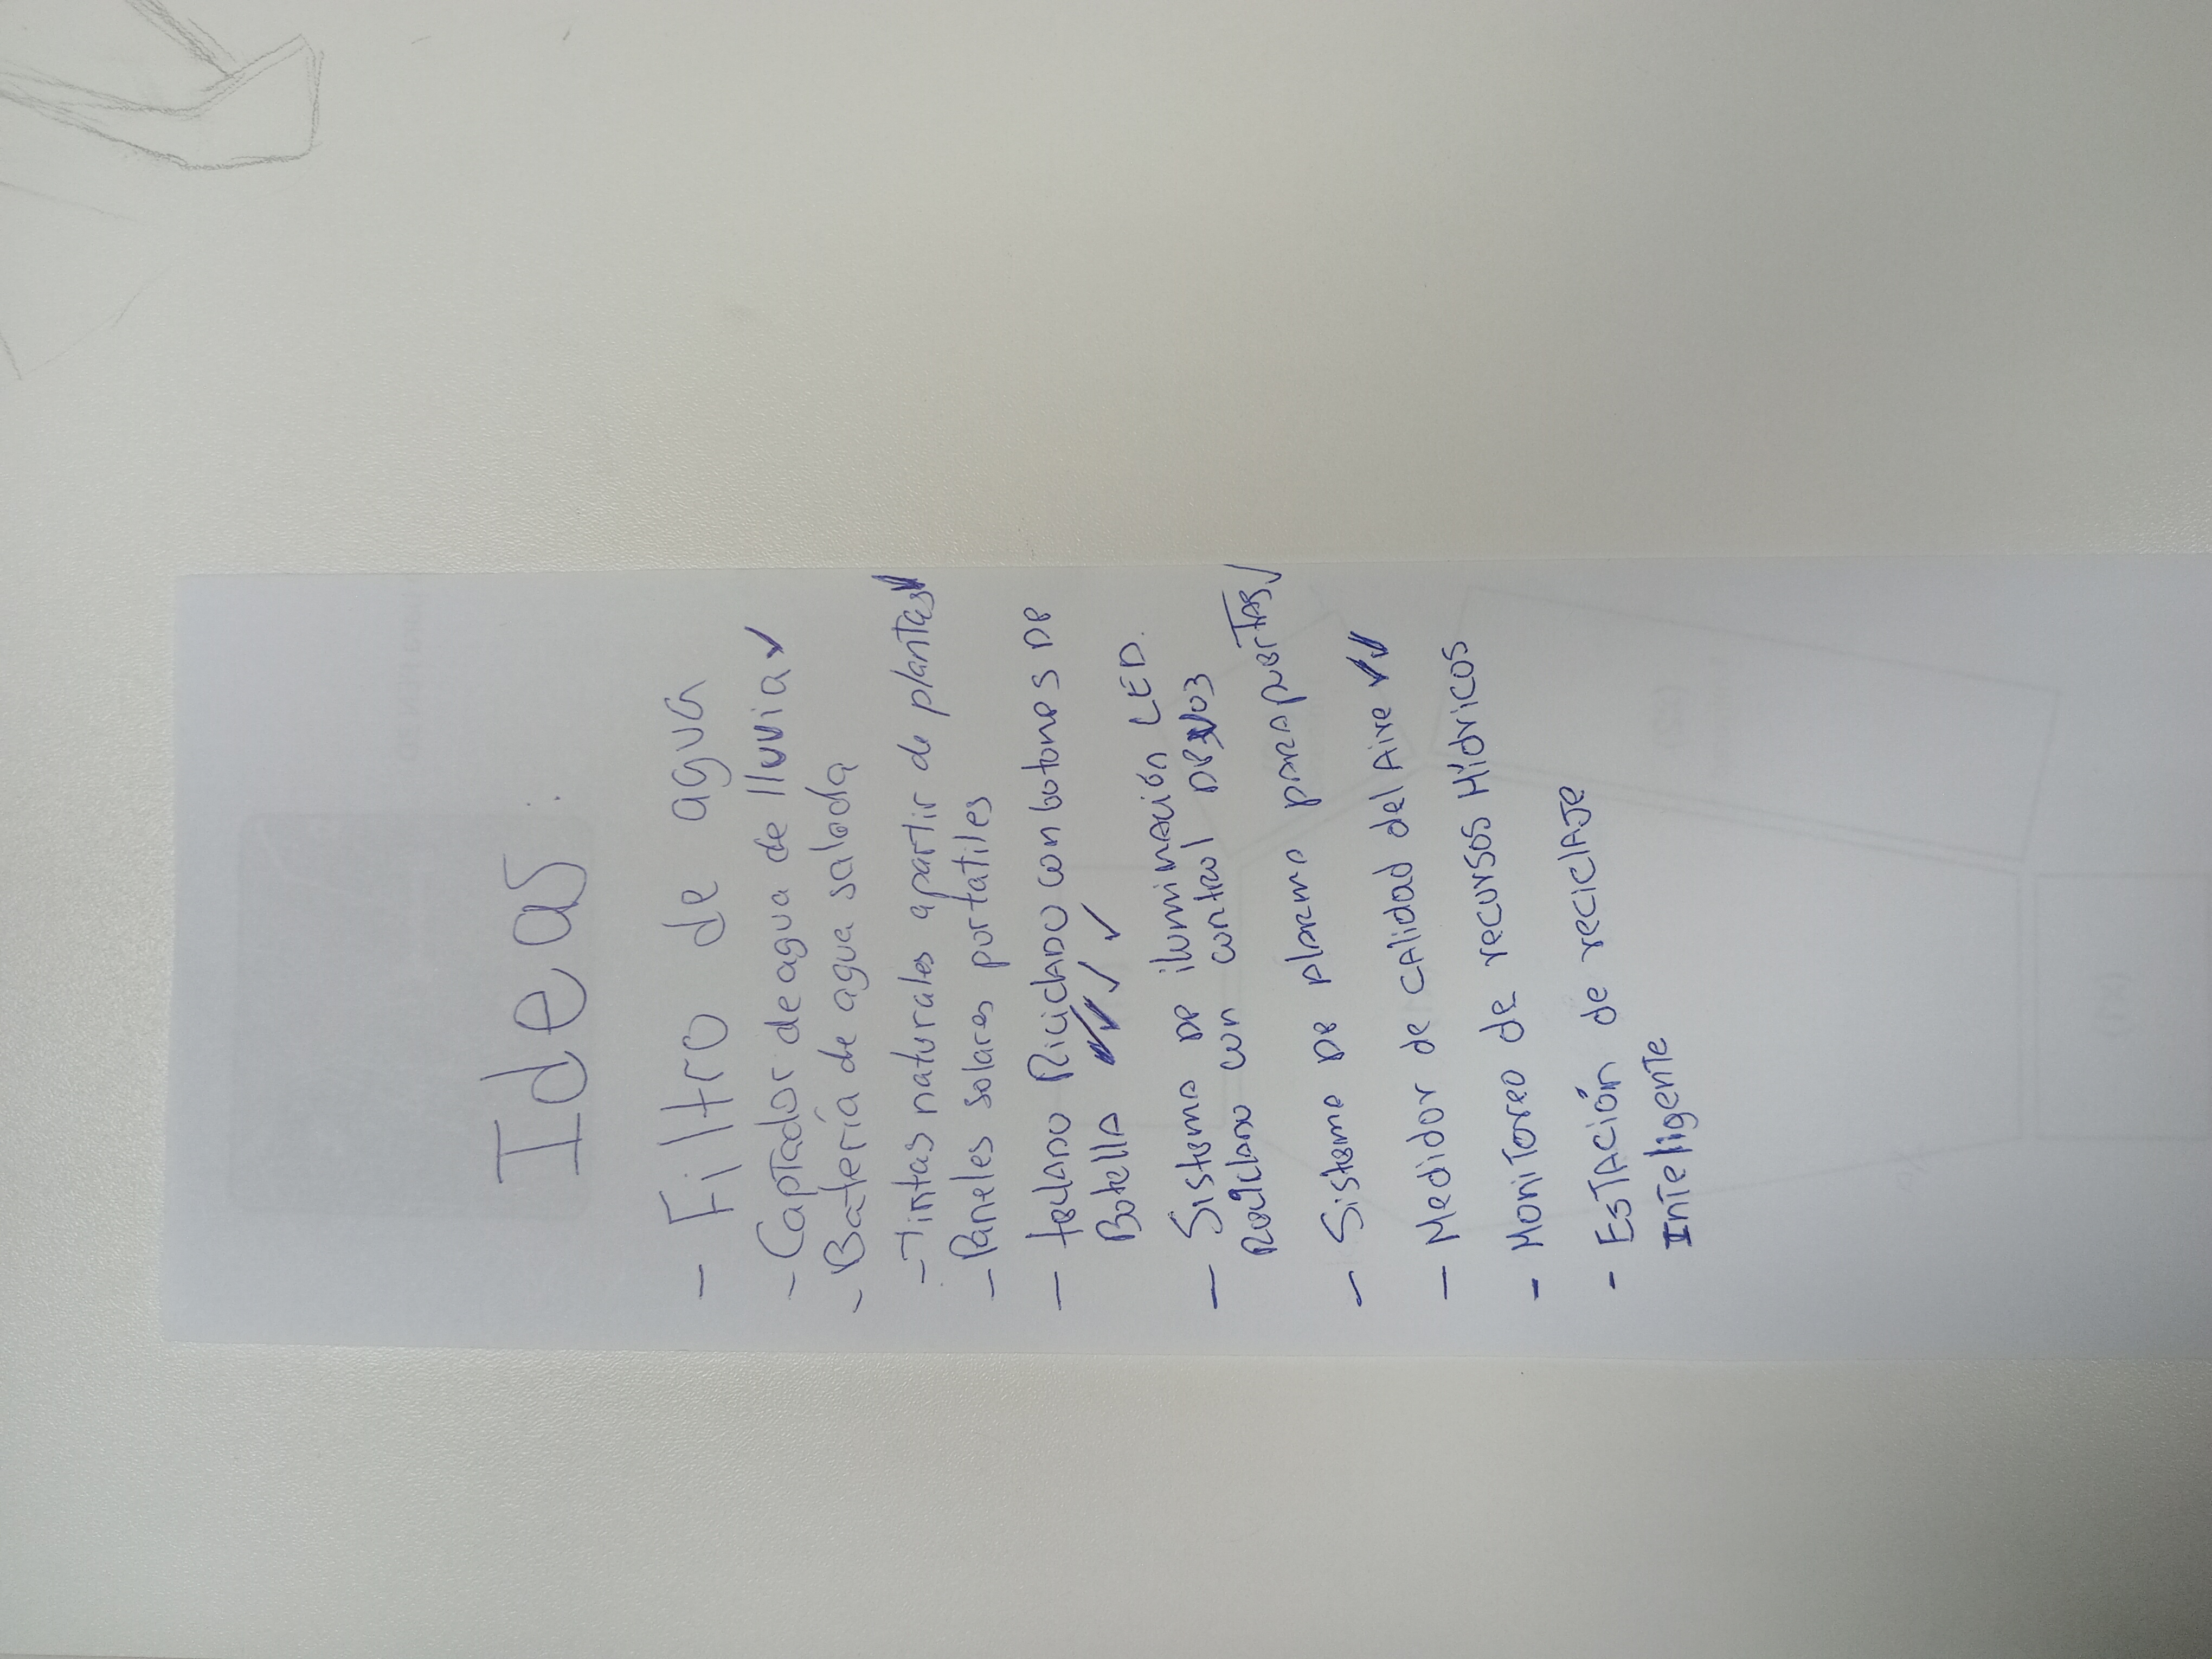 Ideas:
- Filtro de agua
- Captador de agua de lluvia ✓
- Batería de agua salada
- Tintas naturales apartir de plantas ✓
- Paneles solares portatiles
- teclado Riciclado con botones De
Botella ✓✓✓✓
- Sistema De iluminación LED.
Reciclado con control De voz
- Sistema De Alarma para puertas ✓
- Medidor de calidad del Aire ✓✓
- Monitoreo de recursos Hídricos
- Estación de reciclaje
Inteligente